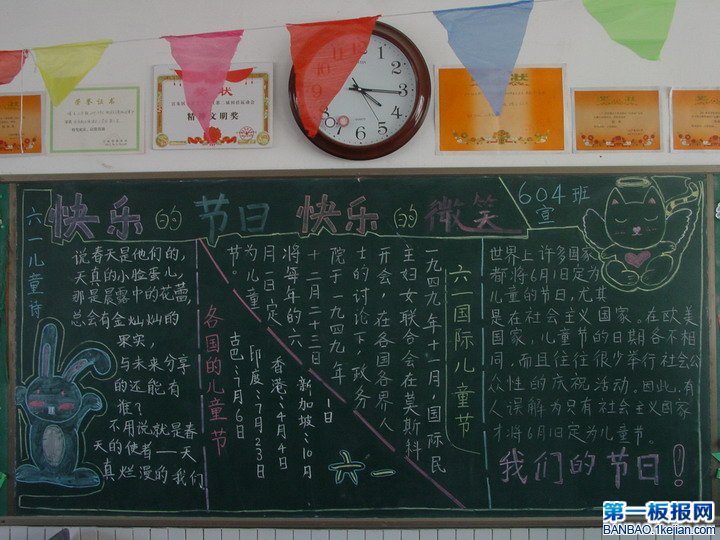 荣誉证书
奖状
精神文明奖
快乐的节日 快乐的微笑
604班
宣
六一儿童诗
说春天是他们的,
天真的小脸蛋儿,
那是晨露中的花蕾,
总会有金灿灿的
果实,
与未来分享
的还能有
谁?
不用说就是春
天的使者——天
真烂漫的我们
各国的儿童节
古巴:7月6日
印度:7月23日
香港:4月4日
新加坡:10月
1日
六一
六一国际儿童节
一九四九年十一月,国际民
主妇女联合会在莫斯科
开会,在各国各界人
士的讨论下,政务
院于一九四九年
十二月二十三日
将每年的六
月一日定
为儿童
节。
世界上许多国家
都将6月1日定为
儿童的节日,尤其
是在社会主义国家。在欧美
国家,儿童节的日期各不相
同,而且往往很少举行社会公
众性的庆祝活动。因此,有
人误解为只有社会主义国家
才将6月1日定为儿童节。
我们的节日!
第一板报网
BANBAO.1kejian.com